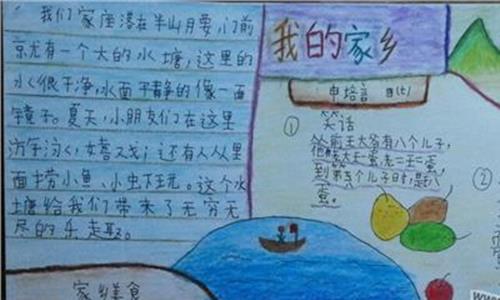 我们家座落在半山月要,门前
京尤有一个大的水塘,这里的
水很干净,水面干静的像一面
镜子。夏天,小朋友们在这里
女喜戏;还有人从里
面捞小鱼、小虫下玩。这个水
塘给我们带来了无穷无
尽的乐趣。
家乡美食
我的家乡
申培音
① 笑话
从前王大爷有八个儿子,
老大王一蛋,老二王二蛋,
到第五个儿子时,是八
蛋。
②